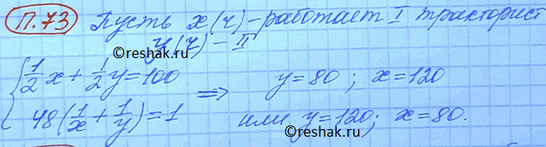 П.73 Пусть x(ч) - работает I тракторист
y(ч) - II
©reshak.ru
{ 1/2 x + 1/2 y = 100
48(1/x + 1/y) = 1 ⟹ y = 80 ; x = 120
или y = 120; x = 80.
©reshak.ru